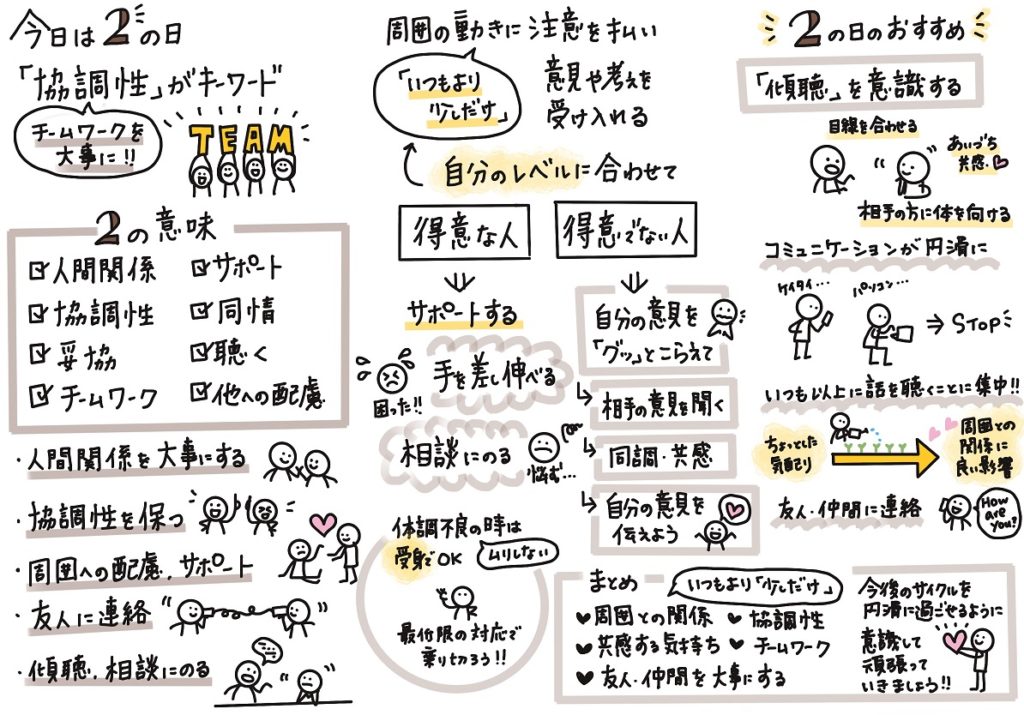 今日は2の日
「協調性」がキーワード
チームワークを
大事に!!
TEAM
2の意味
人間関係
サポート
協調性
同情
妥協
聴く
チームワーク
他への配慮
・人間関係を大事にする
・協調性を保つ
・周囲への配慮、サポート
・友人に連絡
・傾聴、相談にのる
周囲の動きに注意を払い
「いつもより
少しだけ」
意見や考えを
受け入れる
自分のレベルに合わせて
得意な人
サポートする
手を差し伸べる
困った!!
相談にのる
悩む…
得意でない人
自分の意見を
「グッ」とこらえて
相手の意見を聞く
同調・共感
自分の意見を
伝えよう
体調不良の時は
受身でOK
ムリしない
最低限の対応で
乗り切ろう!!
2の日のおすすめ
「傾聴」を意識する
目線を合わせる
あいづち
共感
相手の方に体を向ける
コミュニケーションが円滑に
ケイタイ…
パソコン…
⇒STOP
いつも以上に話を聴くことに集中!!
ちょっとした
気配り
周囲との
関係に
良い影響
友人・仲間に連絡
How
are
you?
まとめ
いつもより「少しだけ」
周囲との関係
協調性
共感する気持ち
チームワーク
友人・仲間を大事にする
今後のサイクルを
円滑に過ごせるように
意識して
頑張って
いきましょう!!